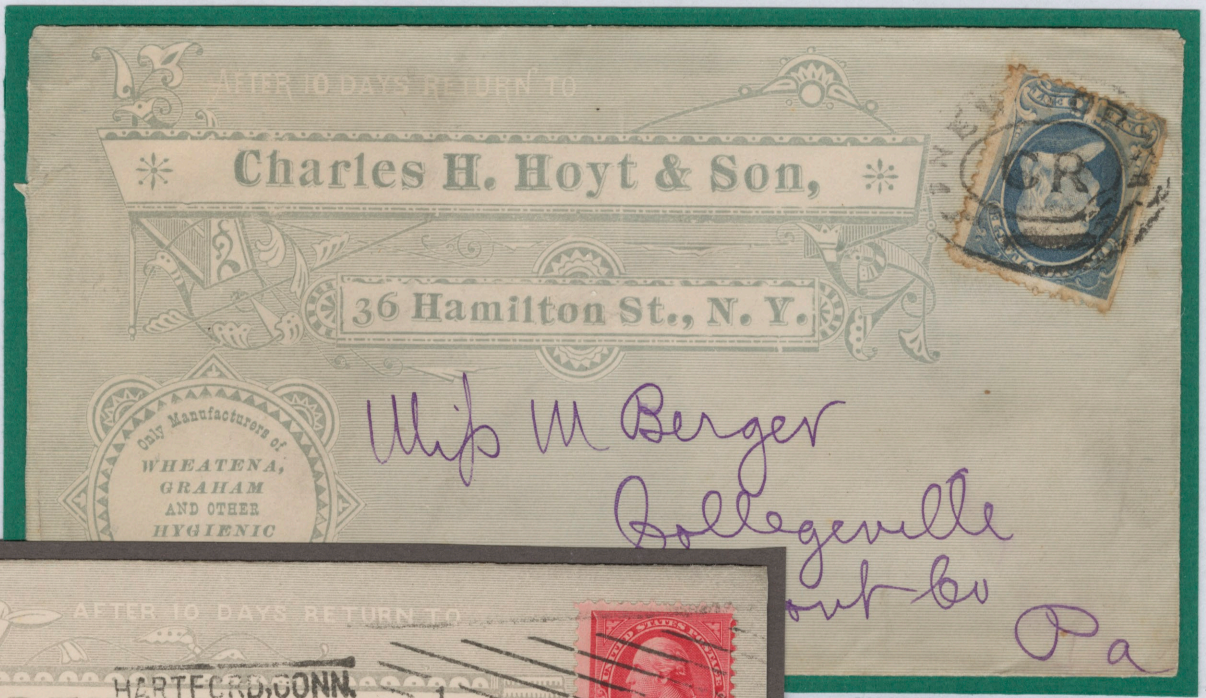 AFTER 10 DAYS RETURN TO
Charles H. Hoyt & Son,
36 Hamilton St., N. Y.
CR
Only Manufacturers of
WHEATENA,
GRAHAM
AND OTHER
HYGIENIC
Miss M Berger
Collegeville
Mont Co
Pa
AFTER 10 DAYS RETURN TO
HARTFORD, CONN.
UNITED STATES